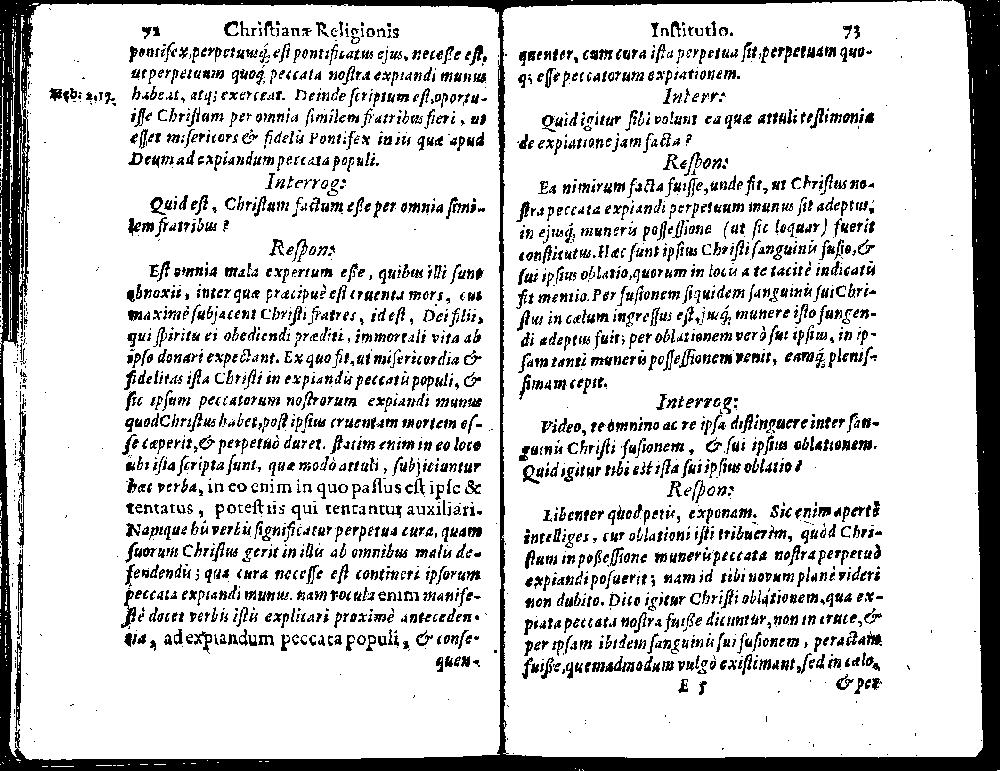 72 Christianæ Religionis
pontifex, perpetuusq́, est pontificatus ejus, necesse est,
ut perpetuum quoq́, peccata nostra expiandi munus
Heb: 2, 17. habeat, atq; exerceat. Deinde scriptum est, oportu-
isse Christum per omnia similem fratribus fieri, ut
esset misericors & fidelis Pontifex in iis quæ apud
Deum ad expiandum peccata populi.
Interrog:
Quid est, Christum factum esse per omnia simi-
lem fratribus?
Respon:
Est omnia mala expertum esse, quibus illi sunt
obnoxii, inter quæ præcipuè est cruenta mors, cui
maximè subjacent Christi fratres, id est, Dei filii,
qui spiritu ei obediendi præditi, immortali vita ab
ipso donari expectant. Ex quo fit, ut misericordia &
fidelitas ista Christi in expiandis peccatis populi, &
sic ipsum peccatorum nostrorum expiandi munus
quod Christus habet, post ipsius cruentam mortem es-
se cæperit, & perpetuò duret. statim enim in eo loco
ubi ista scripta sunt, quæ modò attuli, subjiciuntur
hæc verba, in eo enim in quo passus est ipse &
tentatus, potest iis qui tentantur auxiliari.
Namque his verbis significatur perpetua cura, quam
suorum Christus gerit in illis ab omnibus malis de-
fendendis; qua cura necesse est contineri ipsorum
peccata expiandi munus. nam vocula enim manife-
stè docet verbis istis explicari proximè anteceden-
tia, ad expiandum peccata populi, & conse-
quen-
Institutio. 73
quenter, cum cura ista perpetua sit, perpetuam quo-
q; esse peccatorum expiationem.
Interr:
Quid igitur sibi volunt ea quæ attuli testimonia
de expiatione jam facta?
Respon:
Ea nimirum facta fuisse, unde fit, ut Christus no-
stra peccata expiandi perpetuum munus sit adeptus,
in ejusq́, muneris possessione (ut sic loquar) fuerit
constitutus. Hæc sunt ipsius Christi sanguinis fusio, &
sui ipsius oblatio, quorum in locis a te tacitè indicatis
fit mentio. Per fusionem siquidem sanguinis sui Chri-
stus in cælum ingressus est, jusq́, munere isto fungen-
di adeptus fuit; per oblationem verò sui ipsius, in ip-
sam tanti muneris possessionem venit, eamq́, plenis-
simam cepit.
Interrog:
Video, te omnino ac re ipsa distinguere inter san-
guinis Christi fusionem, & sui ipsius oblationem.
Quid igitur tibi est ista sui ipsius oblatio?
Respon:
Libenter quod petis, exponam. Sic enim apertè
intelliges, cur oblationi isti tribuerim, quòd Chri-
stum in possessione muneris peccata nostra perpetuò
expiandi posuerit; nam id tibi novum planè videri
non dubito. Dico igitur Christi oblationem, qua ex-
piata peccata nostra fuisse dicuntur, non in cruce, &
per ipsam ibidem sanguinis sui fusionem, peractam
fuisse, quemadmodum vulgò existimant, sed in cælo,
E 5 & per